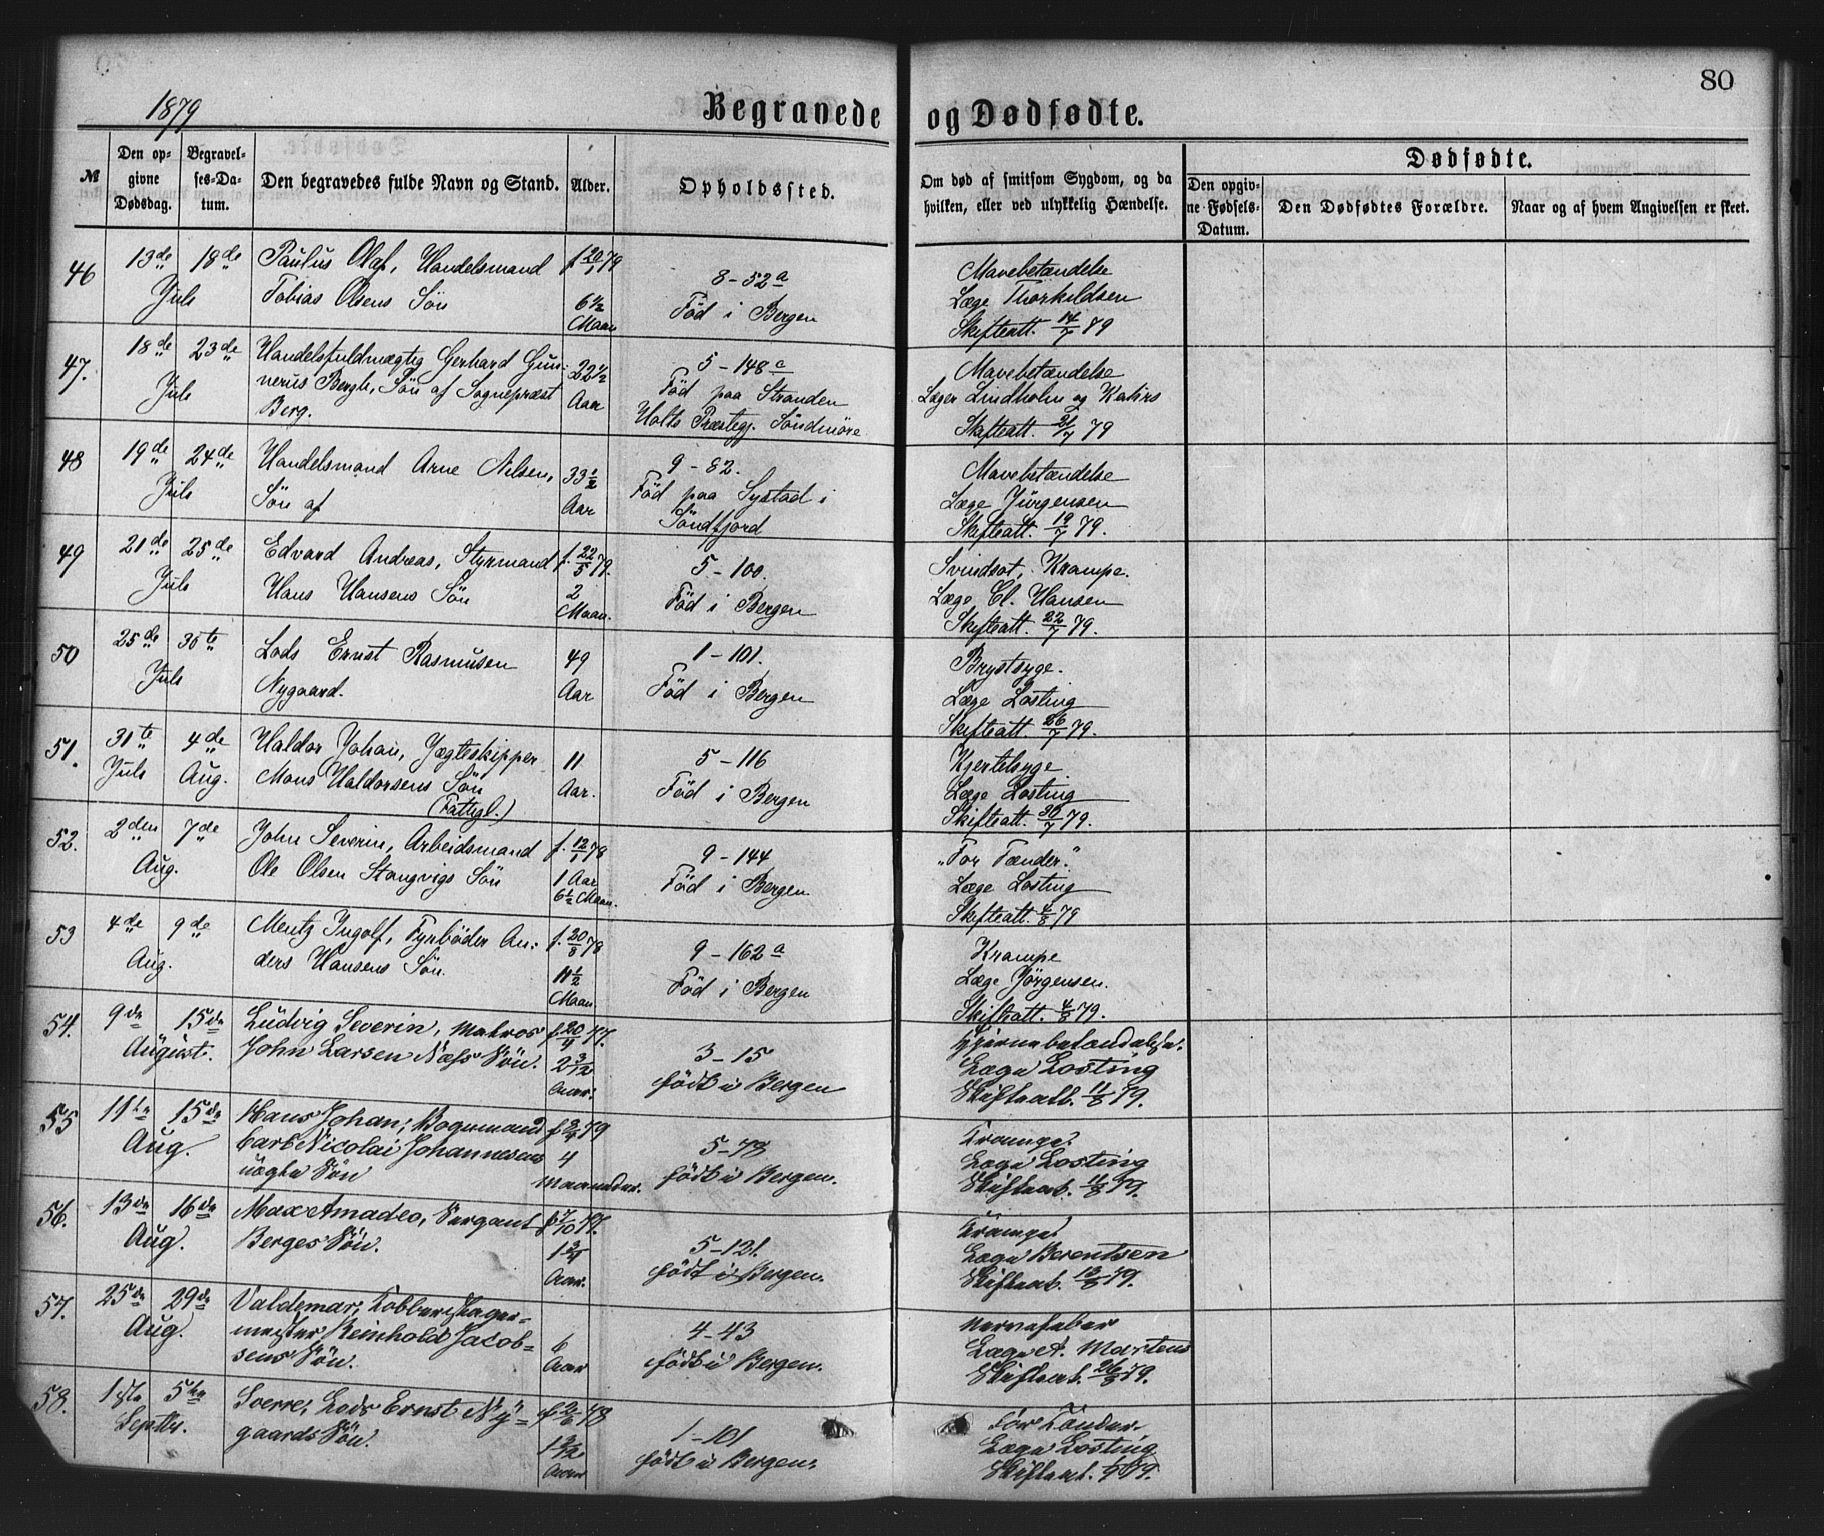 80
1879
Begravede og Dødfødte.
№
Den opgivne Dødsdag.
Begravelses-Datum.
Den begravedes fulde Navn og Stand.
Alder.
Opholdssted.
Om død af smitsom Sygdom, og da hvilken, eller ved ulykkelig Hændelse.
Dødfødte.
Den opgivne Fødsels-Datum.
Den Dødfødtes Forældre.
Naar og af hvem Angivelsen er skeet.
46 13de Juli 18de Paulus Olaf, Handelsmand f. 20/1 79
Tobias Olsens Søn 6 1/2 Maan
8-52a
Fød i Bergen
Mavebetændelse
Læge Thorkildsen
Skifteatt. 14/7 79
47. 18de Juli 23de Handelsfuldmægtig Gerhard Gun-
nerus Bergh, Søn af Sognepræst
Berg.
22 1/2 Aar
5-148c
Fød paa Stranden
Præstegj. Søndmøre
Mavebetændelse
Læger Lindholm og
Skifteatt. 21/7 79
48 19de Juli 24de Handelsmand Arne Nilsen,
Søn af
33 1/2 Aar
9-82.
Fød paa Systad i
Søndfjord
Mavebetændelse
Læge Jürgensen
Skifteatt. 19/7 79.
49 21de Juli 25de Edvard Andreas, Styrmand f. 22/5 79.
Hans Hansens Søn 2 Maan.
5-100.
Fød i Bergen
Svindsot, Krampe.
Læge Cl. Hansen
Skifteatt. 22/7 79.
50 25de Juli 30te Lods Ernst Rasmusen
Nygaard.
49 Aar
1-101.
Fød i Bergen
Brystsyge.
Læge Losting
Skifteatt. 26/7 79.
51. 31te Juli 4de Aug. Haldor Johan, Jægteskipper
Mons Haldorsens Søn
(Fattigl.)
11 Aar.
5-116
Fød i Bergen
Kjertelsyge
Læge Losting
Skifteatt. 30/7 79.
52. 2den Aug. 7de John Severin, Arbeidsmand f. 12/1 78
Ole Olsen Stangvigs Søn 1 Aar
6 1/2 Maan.
9-144
Fød i Bergen
"For Tænder."
Læge Losting
Skifteatt. 4/8 79
53 4de Aug. 9de Mentz Ingolf, Fyrbøder An-
ders Hansens Søn.
f. 20/8 78
11 1/2 Maan.
9-162a
Fød i Bergen
Krampe
Læge Jörgensen.
Skifteatt. 4/8 79.
54. 9de August. 15de Ludvig Severin, Matros f. 20/4 77.
John Larsen Næss Søn. 2 3/12 Aar.
3-15
født i Bergen
Hjernebetændelse.
Læge Losting
Skifteatt. 11/8 79.
55 11te Aug. 15de Hans Johan, Bogermand f. 2/4 79
Carl Nicolai Johannesens
uægte Søn
4 Maaneder.
5-78
født i Bergen.
Krampe.
Læge Losting
Skifteatt. 11/8 79.
56. 13de Aug. 16de Max Amadeo, Sergant
Berges Søn.
f. 7/10 77.
1 3/4 Aar.
5-121.
født i Bergen.
Krampe
Læge Berentsen
Skifteatt. 13/8 79.
57. 25de Aug. 29de Valdemar, Kobberslager-
mester Reinhold Jacob-
sens Søn.
6 Aar
4-43
født i Bergen.
Nervefeber
Læge A. Martens
Skifteatt. 26/8 79.
58. 1ste Septbr. 5te Sverre, Lods Ernst Ny-
gaards Søn.
f. 2/6 78
1 3/12 Aar
1-101
født i Bergen.
For Tænder.
Læge Losting
Skifteatt. 1/9 79.